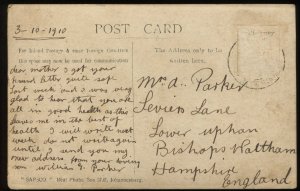 3-10-1910
POST CARD
For Inland Postage & some foreign Countries
this space may now be used for communication
The Address only to be
written here.
dear mother I got your
kind letter quite safe
last week and I was very
glad to hear that you are
all in good health as this
leaves me in the best of
health I will write next
week do not write again
until I send you my
new address from your loving
son William G. Parker
"SAPSCO" Real Photo, Box 5792, Johannesburg.
Mrs A. Parker
Seviers Lane
Lower uphan
Bishops Waltham
Hampshire
England